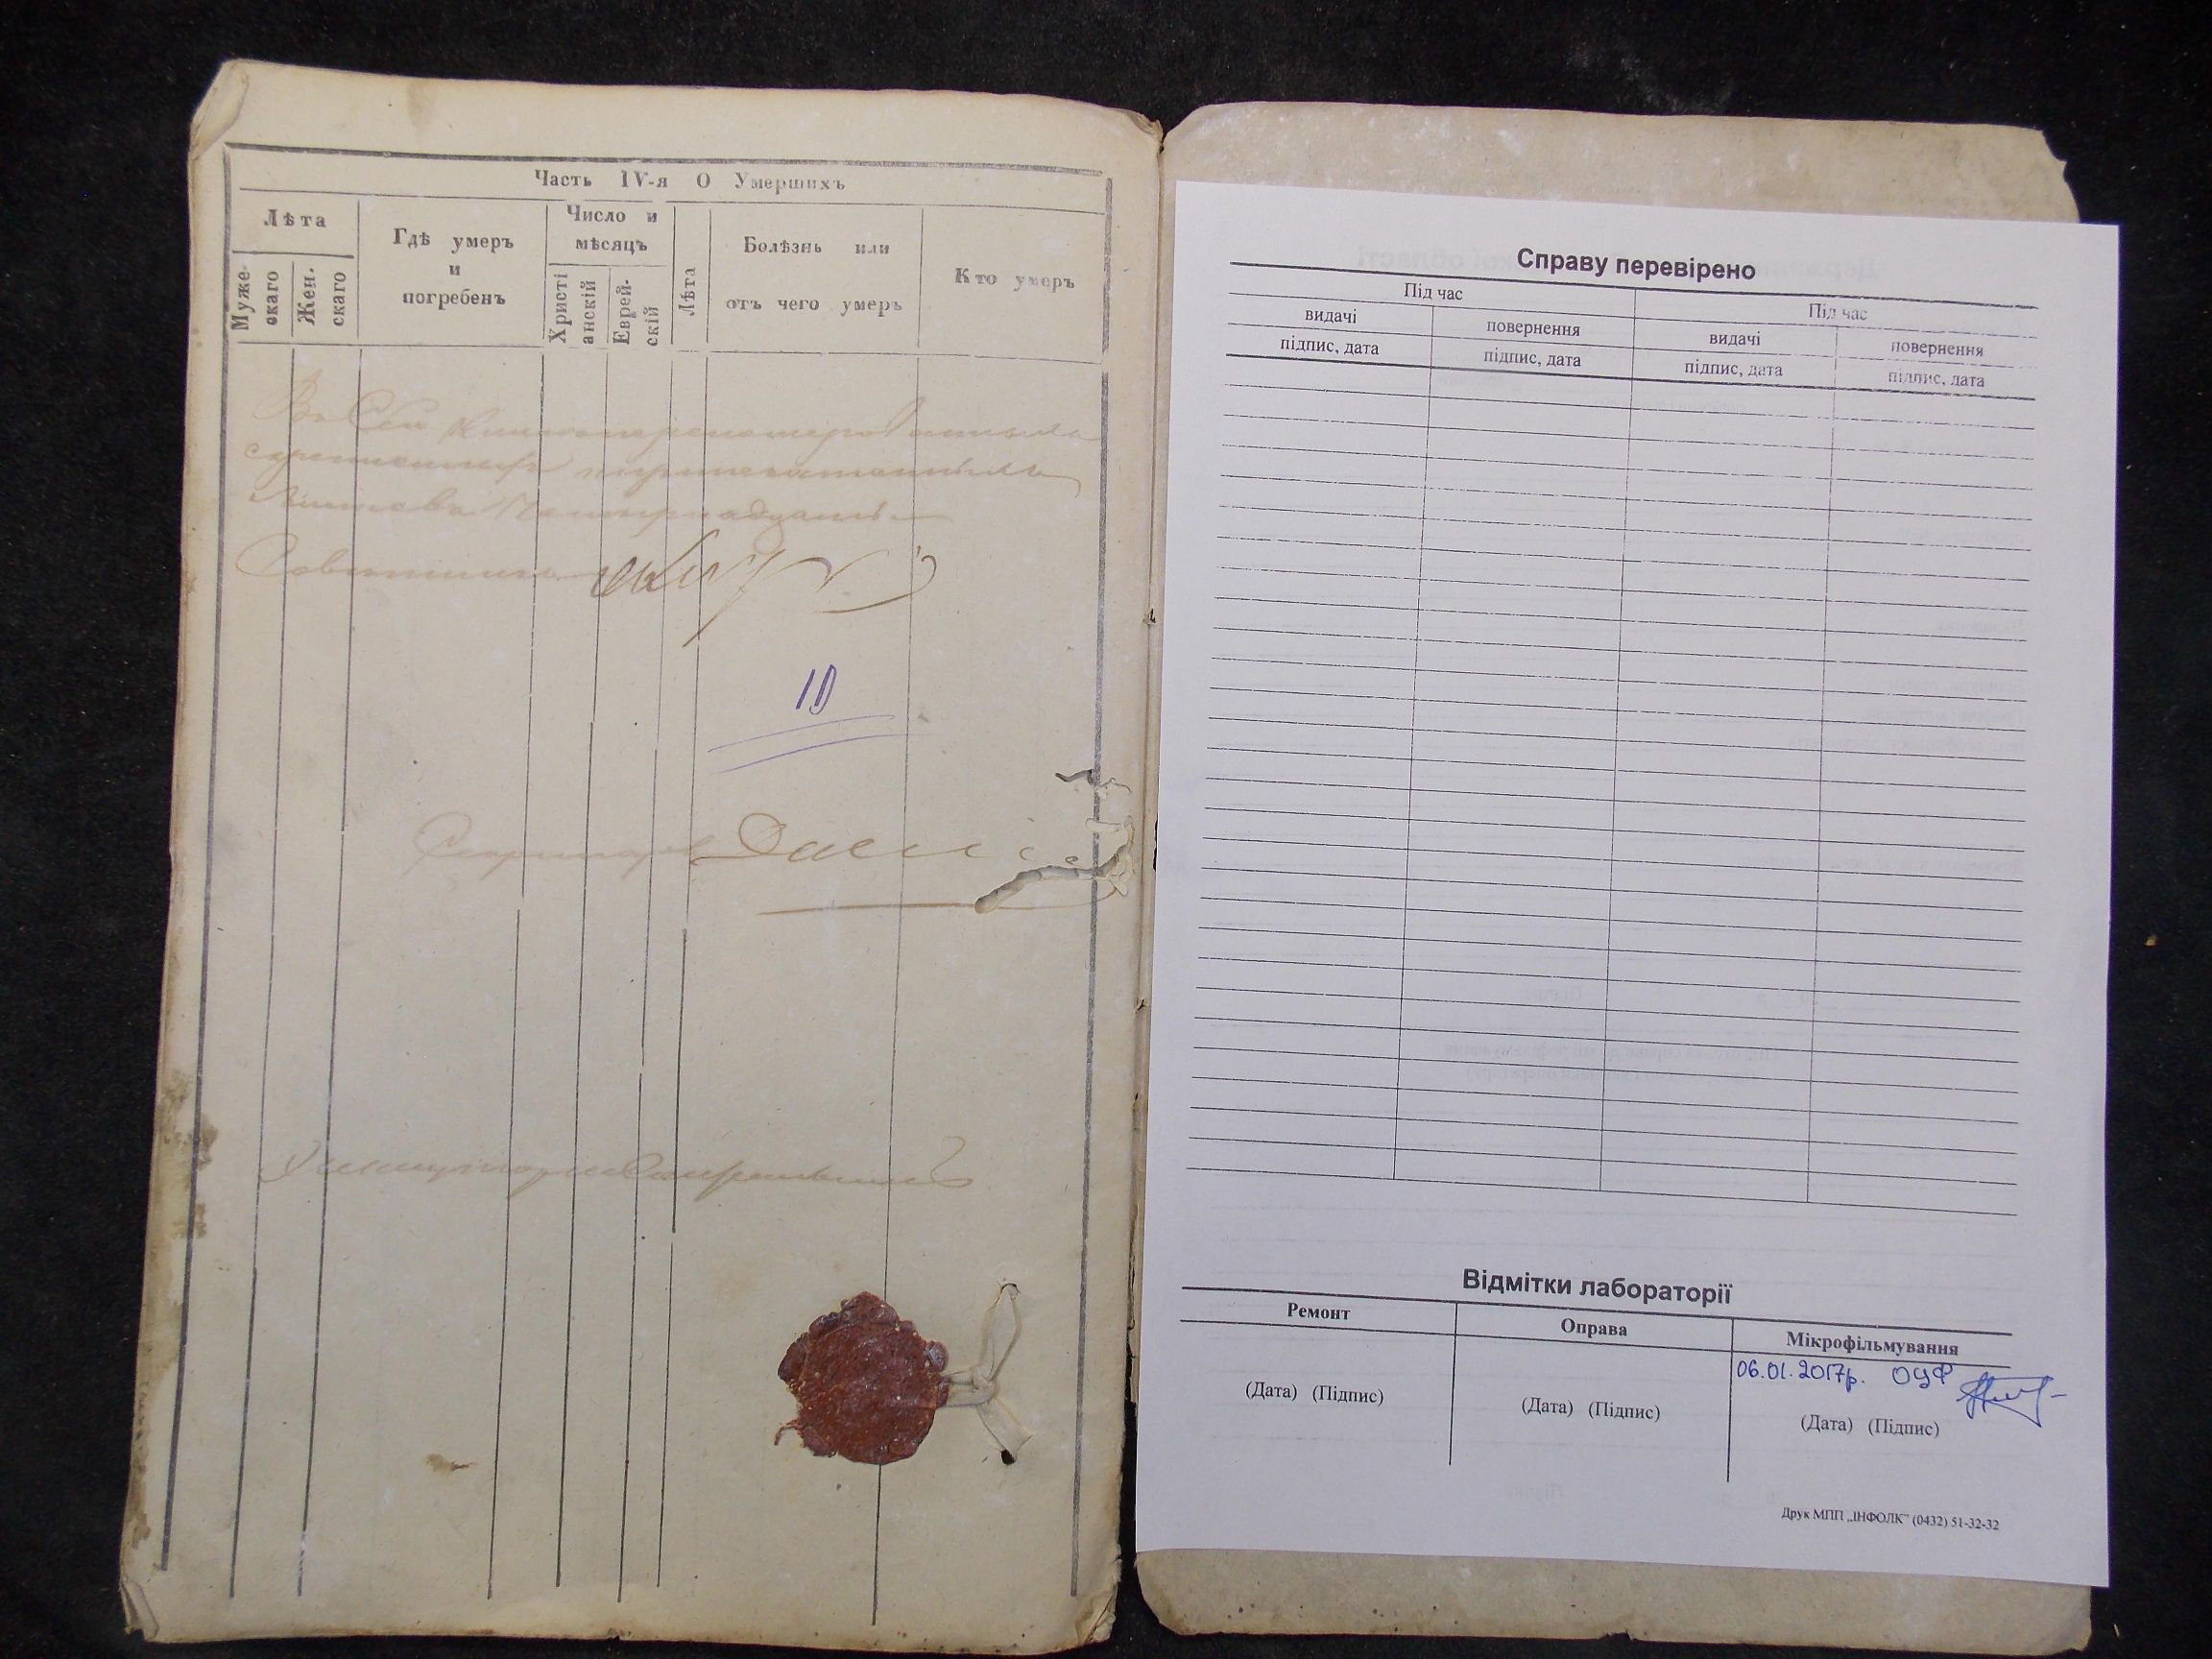 Часть IV-я О Умершихъ
Лѣта
Муже-
скаго
Жен.
скаго
Гдѣ умеръ
и
погребенъ
Число и
мѣсяцъ
Христі
анскій
Еврей-
скій
Лѣта
Болѣзнь или
отъ чего умеръ
Кто умеръ
Въ Сей
скрепленныхъ
Листовъ
Совѣтникъ
10
Секретарь
Справу перевірено
Під час
Під час
видачі
повернення
видачі
повернення
підпис, дата
підпис, дата
підпис, дата
підпис, дата
Відмітки лабораторії
Ремонт
Оправа
Мікрофільмування
06.01.2017р. ОЦФ
(Дата) (Підпис)
(Дата) (Підпис)
(Дата) (Підпис)
Друк МПП „ІНФОЛК" (0432) 51-32-32